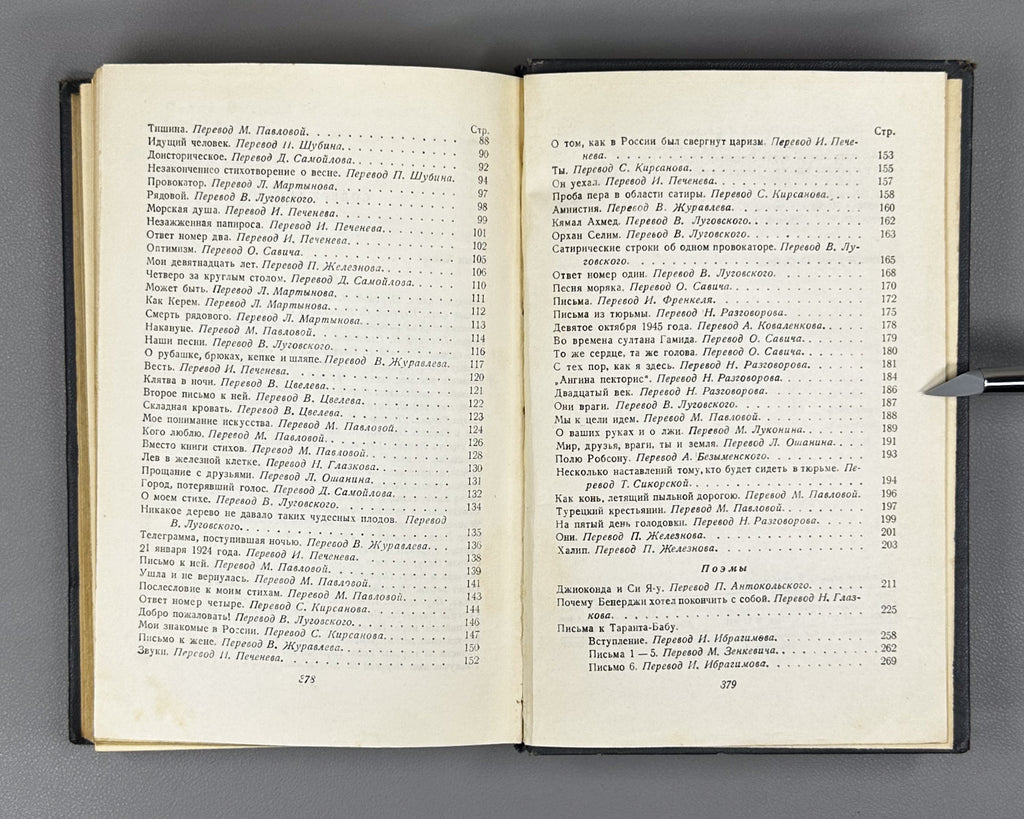 Стр.
Тишина. Перевод М. Павловой. 88
Идущий человек. Перевод П. Шубина. 90
Доисторическое. Перевод Д. Самойлова. 92
Незаконченное стихотворение о весне. Перевод П. Шубина. 94
Провокатор. Перевод Л. Мартынова. 97
Рядовой. Перевод В. Луговского. 98
Морская душа. Перевод И. Печенева. 99
Незажженная папироса. Перевод И. Печенева. 101
Ответ номер два. Перевод И. Печенева. 102
Оптимизм. Перевод О. Савича. 105
Мои девятнадцать лет. Перевод П. Железнова. 106
Четверо за круглым столом. Перевод Д. Самойлова. 110
Может быть. Перевод Л. Мартынова. 111
Как Керем. Перевод Л. Мартынова. 112
Смерть рядового. Перевод Л. Мартынова. 113
Накануне. Перевод М. Павловой. 114
Наши песни. Перевод В. Луговского. 116
О рубашке, брюках, кепке и шляпе. Перевод В. Журавлева. 117
Весть. Перевод И. Печенева. 120
Клятва в ночи. Перевод В. Цвелева. 121
Второе письмо к ней. Перевод В. Цвелева. 122
Складная кровать. Перевод В. Цвелева. 123
Мое понимание искусства. Перевод М. Павловой. 124
Кого люблю. Перевод М. Павловой. 126
Вместо книги стихов. Перевод М. Павловой. 128
Лев в железной клетке. Перевод Н. Глазкова. 130
Прощание с друзьями. Перевод Л. Ошанина. 131
Город, потерявший голос. Перевод Д. Самойлова. 132
О моем стихе. Перевод В. Луговского. 134
Никакое дерево не давало таких чудесных плодов. Перевод
В. Луговского. 135
Телеграмма, поступившая ночью. Перевод В. Журавлева. 136
21 января 1924 года. Перевод И. Печенева. 138
Письмо к ней. Перевод М. Павловой. 139
Ушла и не вернулась. Перевод М. Павловой. 141
Послесловие к моим стихам. Перевод М. Павловой. 143
Ответ номер четыре. Перевод С. Кирсанова. 144
Добро пожаловать! Перевод В. Луговского. 146
Мои знакомые в России. Перевод С. Кирсанова. 147
Письмо к жене. Перевод В. Журавлева. 150
Звуки. Перевод И. Печенева. 152
378
Стр.
О том, как в России был свергнут царизм. Перевод И. Пече-
нева. 153
Ты. Перевод С. Кирсанова. 155
Он уехал. Перевод И. Печенева. 157
Проба пера в области сатиры. Перевод С. Кирсанова. 158
Амнистия. Перевод В. Журавлева. 160
Кямал Ахмед. Перевод В. Луговского. 162
Орхан Селим. Перевод В. Луговского. 163
Сатирические строки об одном провокаторе. Перевод В. Лу-
говского. 165
Ответ номер один. Перевод В. Луговского. 168
Песня моряка. Перевод О. Савича. 170
Письма. Перевод И. Френкеля. 172
Письма из тюрьмы. Перевод Н. Разговорова. 175
Девятое октября 1945 года. Перевод А. Коваленкова. 178
Во времена султана Гамида. Перевод О. Савича. 179
То же сердце, та же голова. Перевод О. Савича. 180
С тех пор, как я здесь. Перевод Н. Разговорова. 181
„Ангина пекторис“. Перевод Н. Разговорова. 184
Двадцатый век. Перевод Н. Разговорова. 186
Они враги. Перевод В. Луговского. 187
Мы к цели идем. Перевод М. Павловой. 188
О ваших руках и о лжи. Перевод М. Луконина. 189
Мир, друзья, враги, ты и земля. Перевод Л. Ошанина. 191
Полю Робсону. Перевод А. Безыменского. 193
Несколько наставлений тому, кто будет сидеть в тюрьме. Пе-
ревод Т. Сикорской. 194
Как конь, летящий пыльной дорогою. Перевод М. Павловой. 196
Турецкий крестьянин. Перевод М. Павловой. 197
На пятый день голодовки. Перевод Н. Разговорова. 199
Они. Перевод П. Железнова. 201
Халип. Перевод П. Железнова. 203
Поэмы
Джиоконда и Си Я-у. Перевод П. Антокольского. 211
Почему Бенерджи хотел покончить с собой. Перевод Н. Глаз-
кова. 225
Письма к Таранта-Бабу.
Вступление. Перевод И. Ибрагимова. 258
Письма 1 — 5. Перевод М. Зенкевича. 262
Письмо 6. Перевод И. Ибрагимова. 269
379